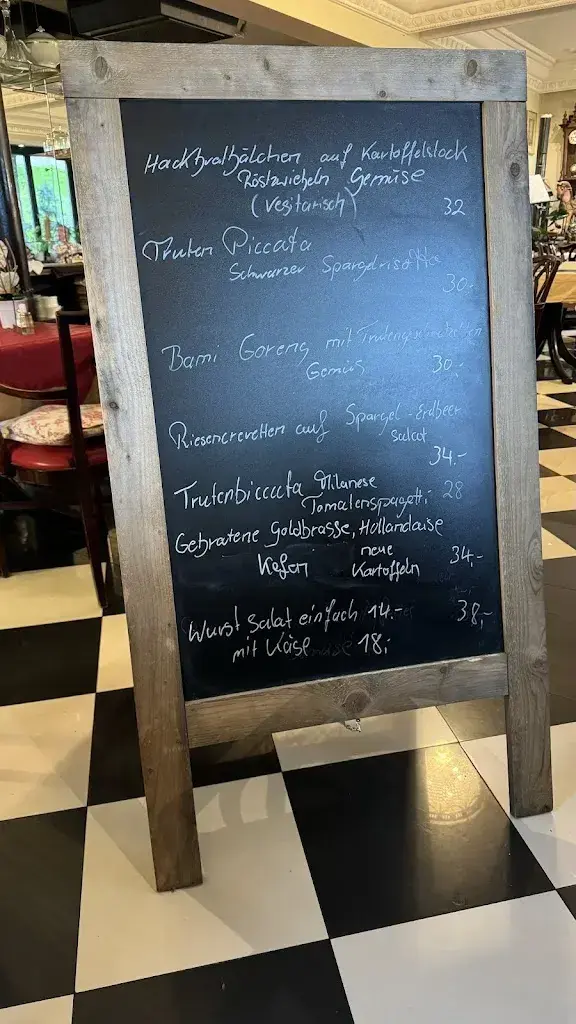 Hackbratbälchen auf Kartoffelstock
Röstzwiebeln Gemüse
(Vegitarisch) 32
Truten Piccata
Schwarzer Spargelrisotto
30.-
Bami Goreng mit
Gemüs 30.-
Riesencrevetten auf Spargel-Erdbeer
salat
34.-
Trutenbiccata Milanese
Tomatenspagetti 28
Gebratene Goldbrasse, Hollandaise
Kefen neue 34.-
Kartoffeln
Wurst Salat einfach 14.- 38.-
mit Käse 18.-